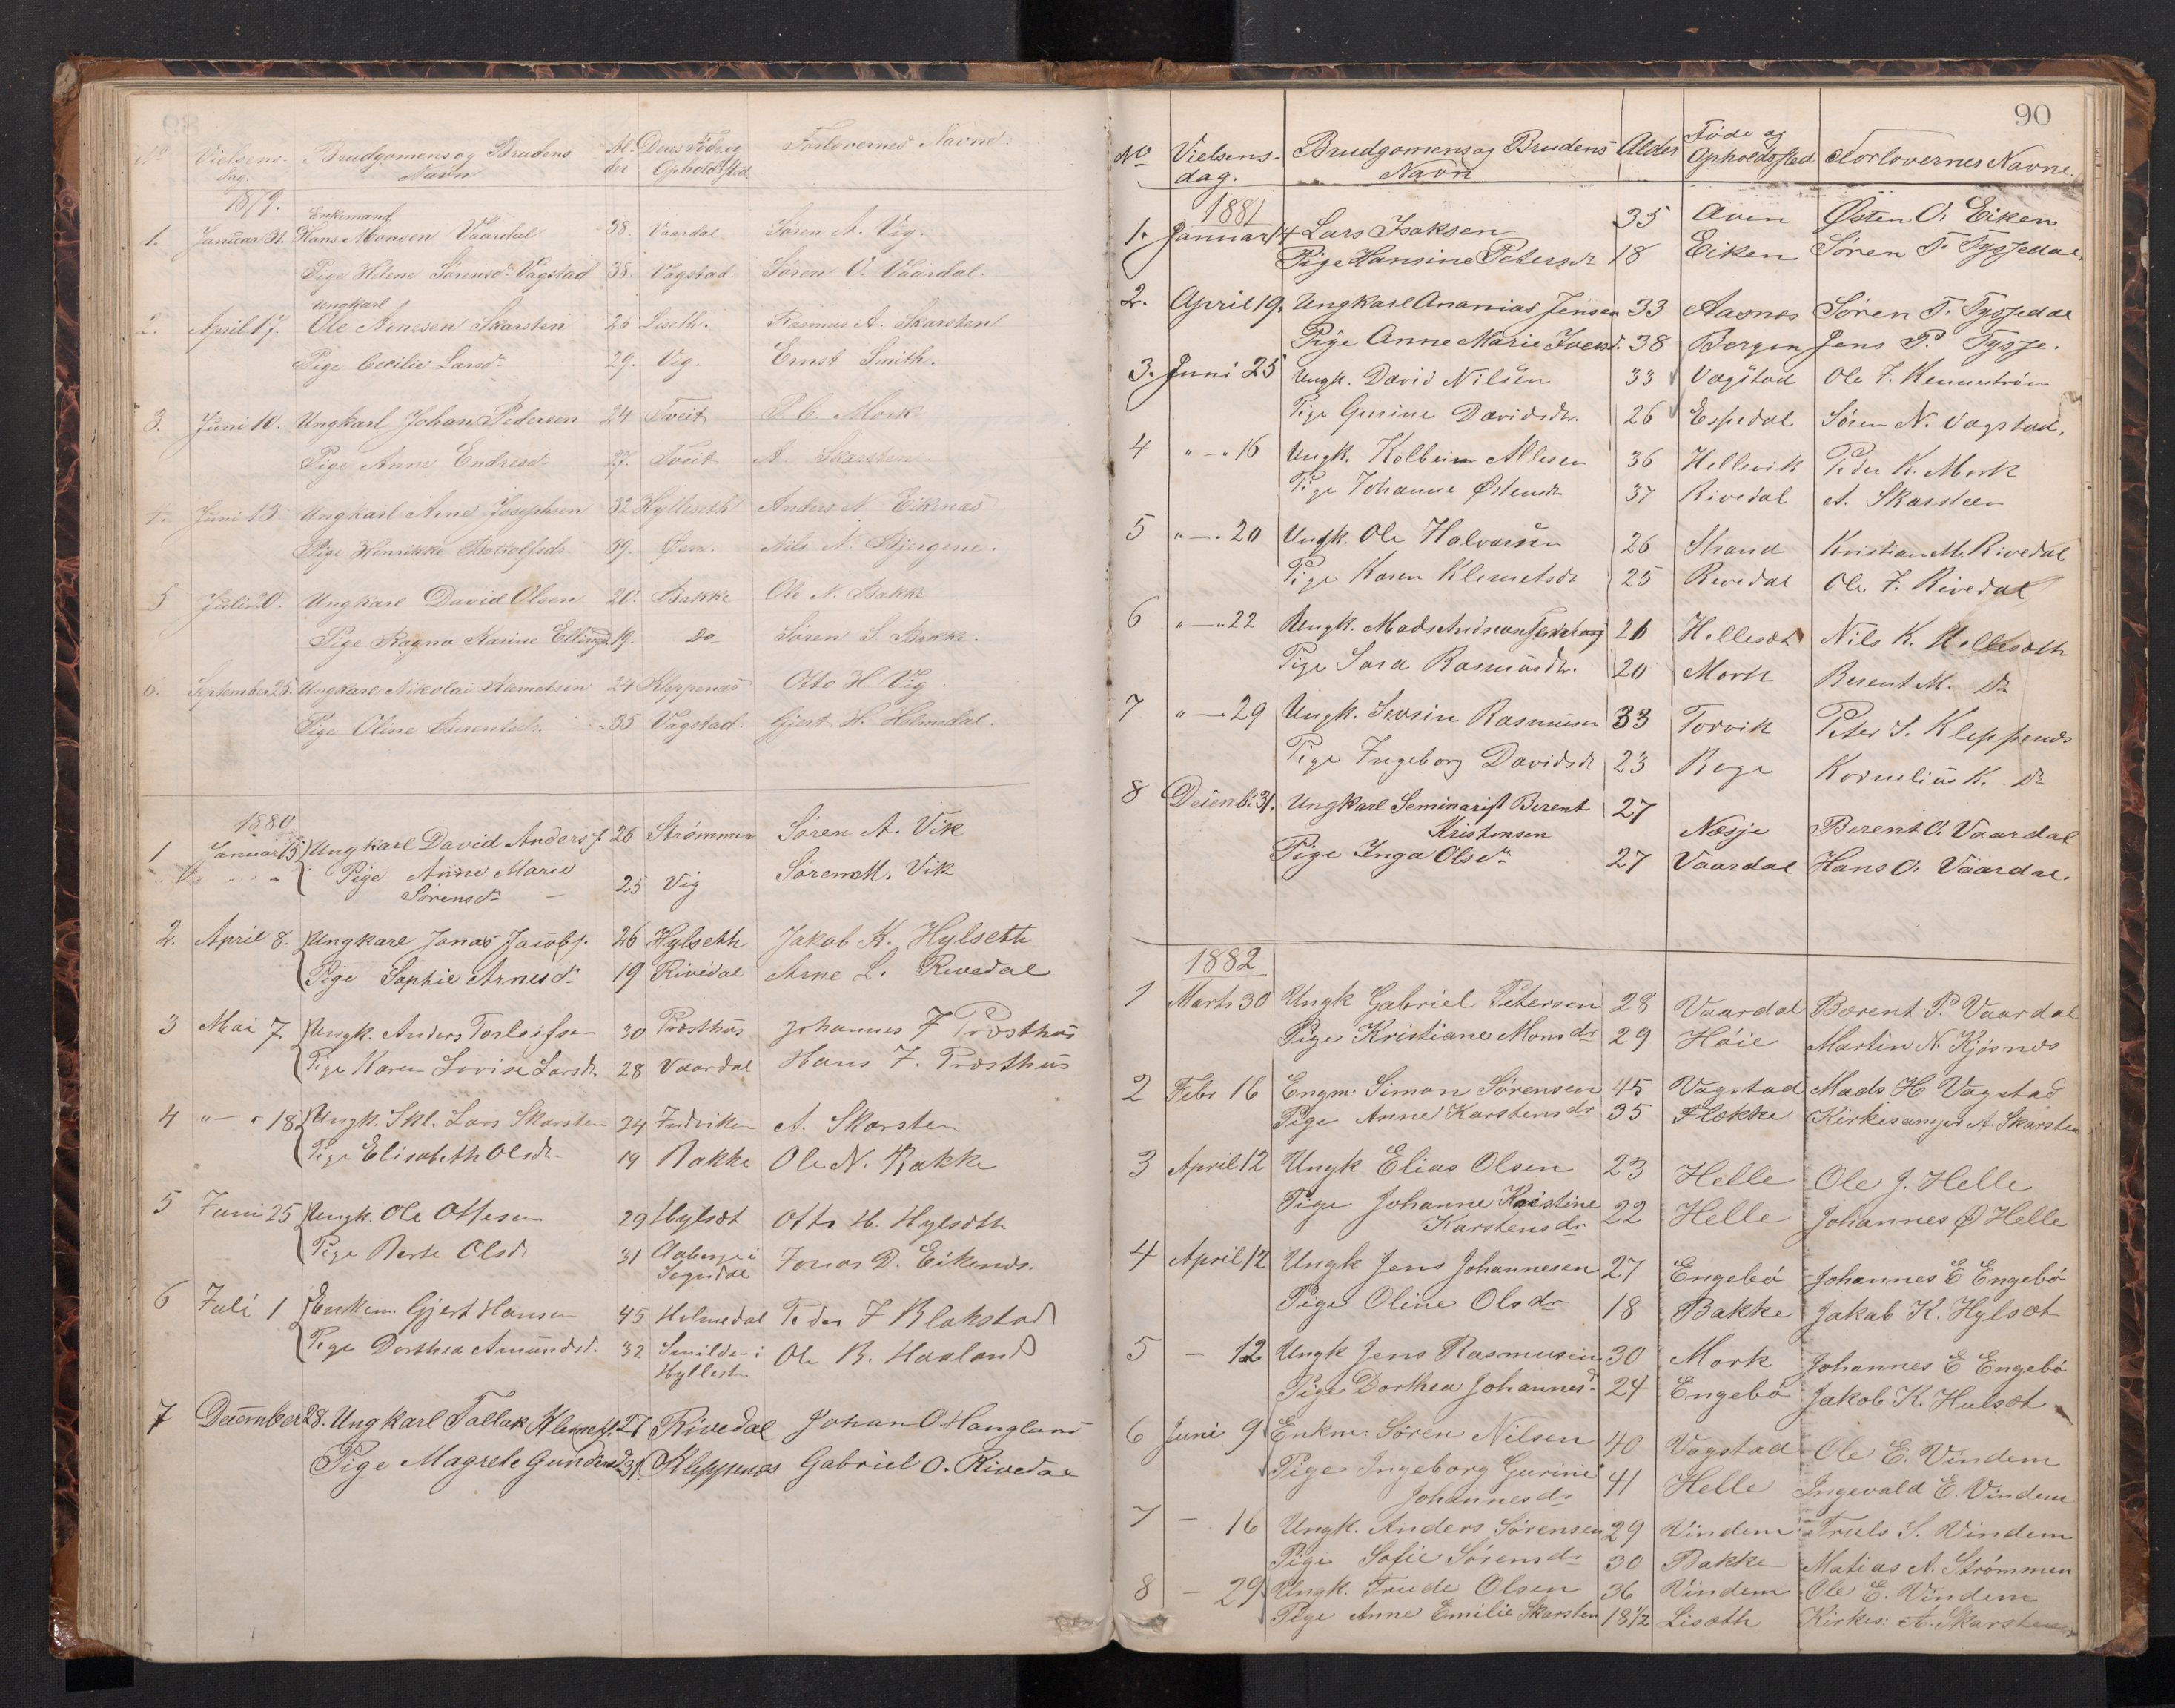 No Vielsens- Brudgomens og Brudens Al- Deres Föde og Forlovernes Navne.
dag. Navn der Opholdssted
1879.
Enkemand
1. Januar 31. Hans Monsen Vaardal 38. Vaardal Sören A. Vig.
Pige Helene Sörensd. Vagstad 38. Vagstad. Sören O. Vaardal.
Ungkarl
2. April 17. Ole Arnesen Skarsten 26 Liseth. Rasmus A. Skarsten
Pige Cecilie Larsd. 29. Vig. Ernst Smith.
3. Juni 10. Ungkarl Johan Pedersen 24 Tveit P. C. Mork
Pige Anne Endresd. 27. Tveit A. Skarsten.
4. Juni 13. Ungkarl Arne Josephsen 32 Hylleseth Anders N. Eikenæs
Pige Henrikke 39. Öen. Nils N.
5 Juli 20. Ungkarl David Olsen 20. Bakke Ole N. Bakke
Pige Ragna Karine 19. do Sören S.
6. September 25. Ungkarl Nikolai Klemetsen 24 Kleppenæs Otto H. Vig.
Pige Oline Berentsd. 35 Vagstad. Gjert H. Holmedal.
1880.
1 Januar 15 Ungkarl David Anders 26 Strömmen Sören A. Vik
Pige Anne Marie
Sörensdr 25 Vig Sören M. Vik
2. April 8. Ungkarl Jonas Jacobs. 26 Hylseth Jakob K. Hylseth
Pige Sophie Arnesdr 19 Rivedal Arne L. Rivedal
3 Mai 7 Ungk. Anders Torleifsen 30 Præsthus Johannes J Præsthus
Pige Karen Lovise Larsdr. 28 Vaardal Hans J. Præsthus
4 " — " 18 Ungk. Skl. Lars Skarsten 24 Indviken A. Skarsten
Pige Elisabeth Olsdr. 19 Bakke Ole N. Bakke
5 Juni 25 Ungk. Ole Ottesen 29 Hylsæt Otto H. Hylsæth
Pige Berte Olsdr 31 Aaberge i Jonas D. Eikenæs.
Sogndal
6 Juli 1 Enkem. Gjert Hansen 45 Holmedal Peder J Blakstad
Pige Dorthea Amundsd. 32 Smilde i Ole B. Haaland
Hyllest.
7 December 28. Ungkarl Tallak Klemets. 27 Rivedal Johan O. Haugland
Pige Magrete Gundersd 31. Kleppenæs Gabriel O. Rivedal
90
No Vielsens- Brudgomens og Brudens Alder Föde og Forlovernes Navne.
dag. Navn Opholdssted
1881
1. Januar 14 Lars Isaksen 35 Aven Østen O. Eiken
Pige Hansine Petersdr 18 Eiken Sören T. Tyssedal.
2. April 19. Ungkarl Ananias Jensen 33 Aasnes Sören T. Tyssedal
Pige Anne Marie Iversd. 38 Bergen Jens P. Tysse.
3. Juni 25 Ungk. David Nilsen 33 Vagstad Ole J.
Pige Gurine Davidsdr. 26 Espedal Sören N. Vagstad.
4 " — " 16 Ungk. Kolbein Allesen 36 Hellevik Peder K. Mork
Pige Johanne Østensdr 37 Rivedal A. Skarsten
5 " — . 20 Ungk. Ole Halvorsen 26 Strand Kristian M. Rivedal
Pige Karen Klemetsdr 25 Rivedal Ole J. Rivedal
6 " — " 22 Ungk. Mads Andreas 26 Hellesæt Nils K. Hellesæth
Pige Sara Rasmusdr. 20 Mork Berent M. do
7 " — 29 Ungk. Sersin Rasmusen 33 Torvik Peter S. Kleppenæs
Pige Ingeborg Davidsdr 23 Kornelius K. do
8 Decemb. 31. Ungkarl Seminarist Berent 27
Kristensen Næsje Berent O. Vaardal
Pige Inga Olsdr 27 Vaardal Hans O. Vaardal.
1882
1 Marts 30 Ungk Gabriel Petersen 28 Vaardal Berent P. Vaardal
Pige Kristiane Monsdr 29 Höie Martin N. Kjösnes
2 Febr 16 Engm: Simon Sörensen 45 Vagstad Mads H Vagstad
Pige Anne Karstensdr 35 Flekke Kirkesanger A. Skarsten
3 April 12 Ungk Elias Olsen 23 Helle Ole J. Helle
Pige Johanne Kristine
Karstensdr 22 Helle Johannes Ø Helle
4 April 12 Ungk Jens Johannesen 27 Engebö Johannes E Engebö
Pige Oline Olsdr 18 Bakke Jakob K. Hylsæt
5 — 12 Ungk Jens Rasmusen 30 Mork Johannes E Engebö
Pige Dorthea Johannesd 24 Engebö Jakob K. Hulsæt
6 Juni 9 Enkm: Sören Nilsen 40 Vagstad Ole E. Vindem
Pige Ingeborg Gurine
Johannesdr 41 Helle Ingevald E. Vindem
7 — 16 Ungk. Anders Sörensen 29 Vindem Truls S. Vindem
Pige Sofie Sörensdr 30 Bakke Matias A. Strömmen
8 — 29 Ungk. Trude Olsen 36 Vindem Ole E. Vindem
Pige Anne Emilie Skarsten 18 1/2 Lisæth Kirkes: A. Skarsten